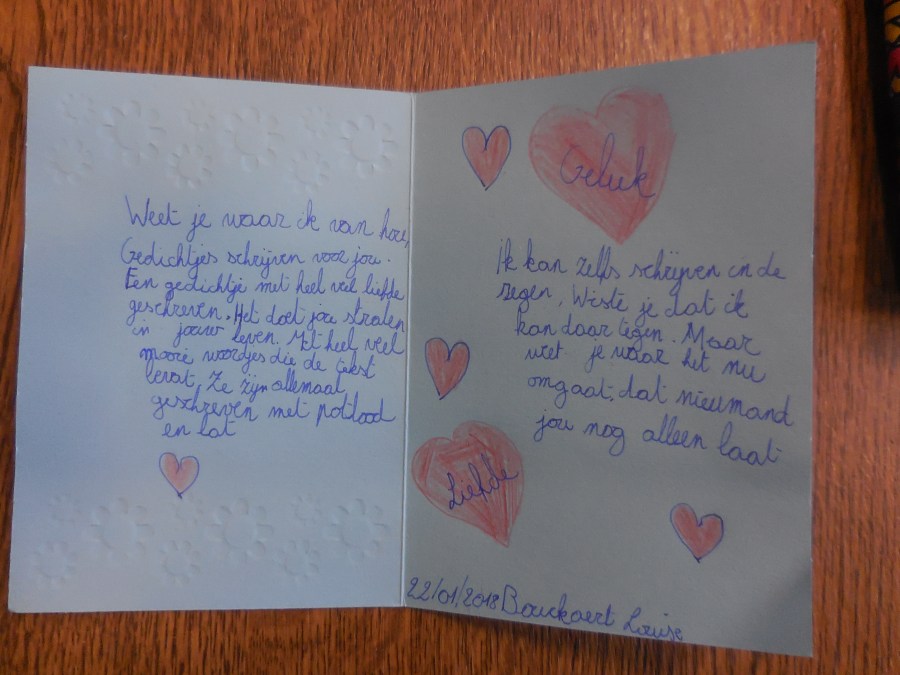 Weet je waar ik van hou,
Gedichtjes schrijven voor jou.
Een gedichtje met heel veel liefde
geschreven. Het doet jou stralen
in jouw leven. Met heel veel
mooie woordjes die de tekst
bevat, Ze zijn allemaal
geschreven met potlood
en lat
Geluk
Ik kan zelfs schrijven in de
regen, Wiste je dat ik
kan daar tegen. Maar
weet je waar het nu
omgaat, dat nieumand
jou nog alleen laat
Liefde
22/01/2018 Bouckaert Louise